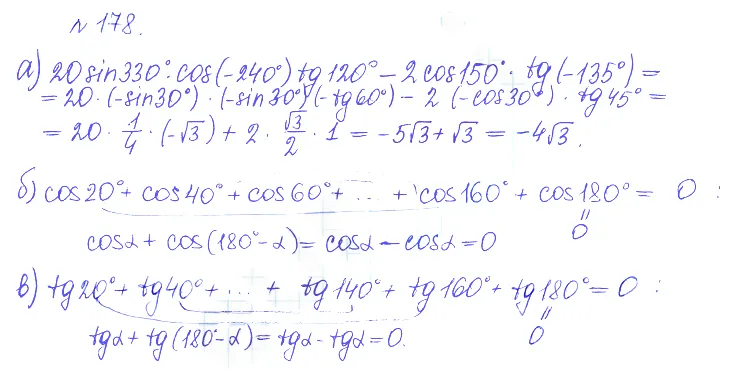 № 178.
а) 20 sin 330° · cos(-240°) tg 120° - 2 cos 150° · tg(-135°) =
= 20 · (-sin 30°) · (-sin 30°)(-tg 60°) - 2 (-cos 30°) · tg 45° =
= 20 · 1/4 · (-√3) + 2 · √3/2 · 1 = -5√3 + √3 = -4√3.
б) cos 20° + cos 40° + cos 60° + ... + cos 160° + cos 180° = 0 :
cos α + cos(180° - α) = cos α - cos α = 0
"
0
в) tg 20° + tg 40° + ... + tg 140° + tg 160° + tg 180° = 0 :
tg α + tg(180° - α) = tg α - tg α = 0.
"
0